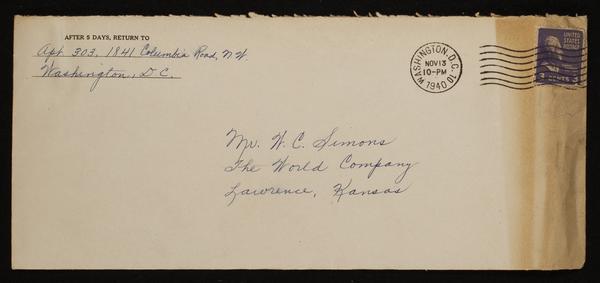 AFTER 5 DAYS, RETURN TO
Apt. 303, 1841 Columbia Road, N.W.
Washington, D.C.
WASHINGTON, D.C. 10
NOV 13
10-PM
1940
UNITED
STATES
POSTAGE
3 CENTS 3
Mr. W. C. Simons
The World Company
Lawrence, Kansas